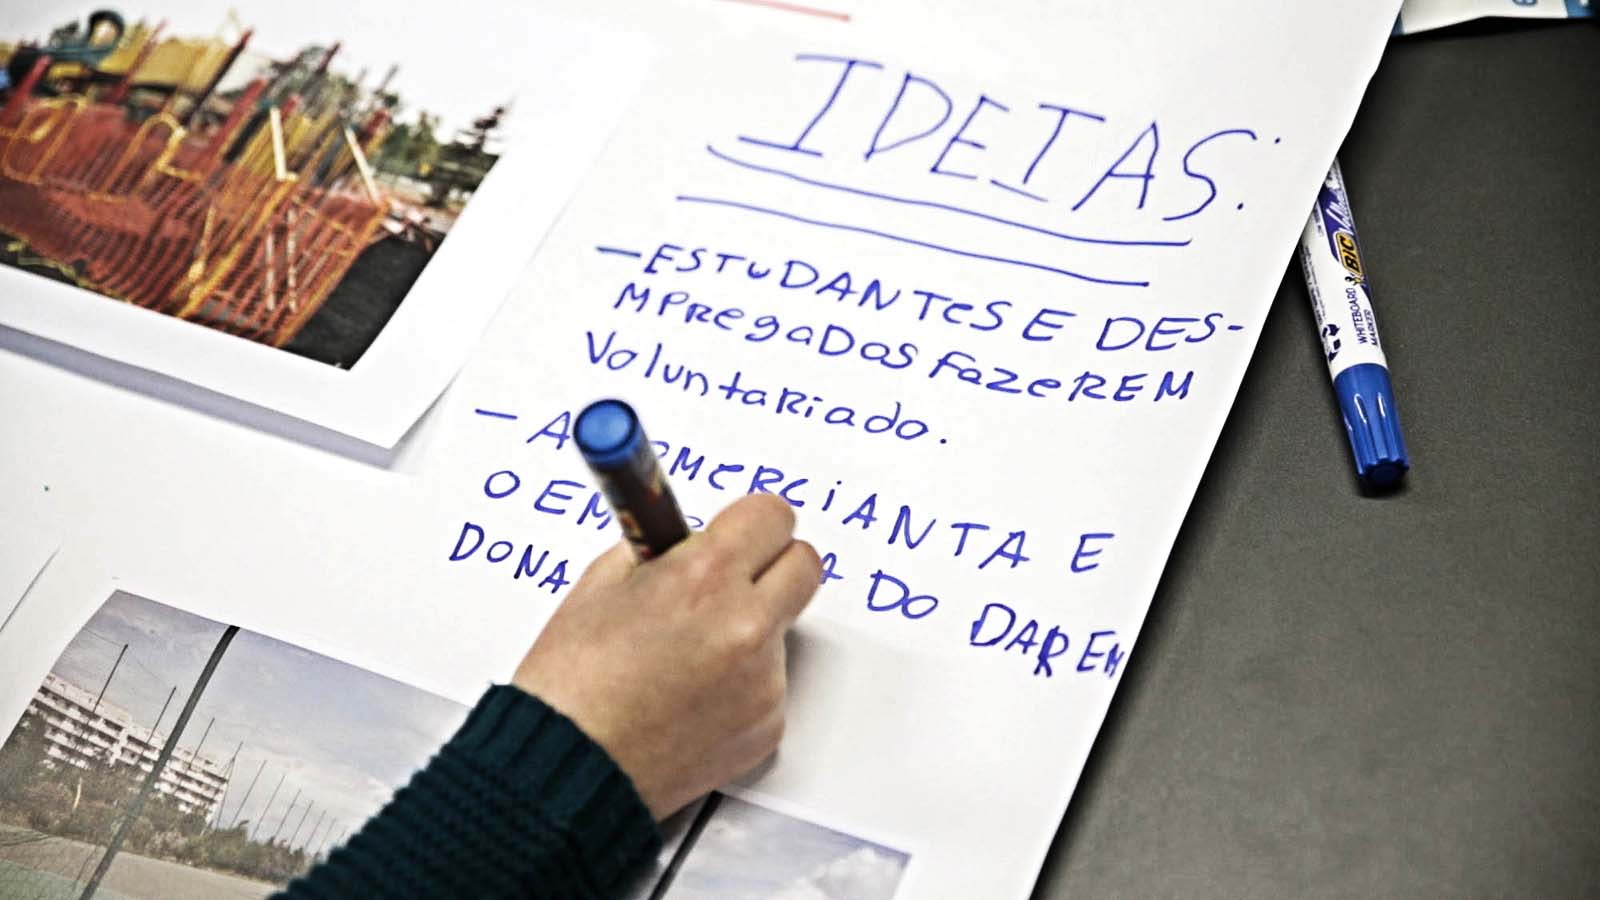 IDEIAS:
— ESTUDANTES E DES-
MPREGADOS FAZEREM
Voluntariado.
— A MERCIANTA E
O EM A DO DAREM
DONA
BIC Velleda
WHITEBOARD
MARKER